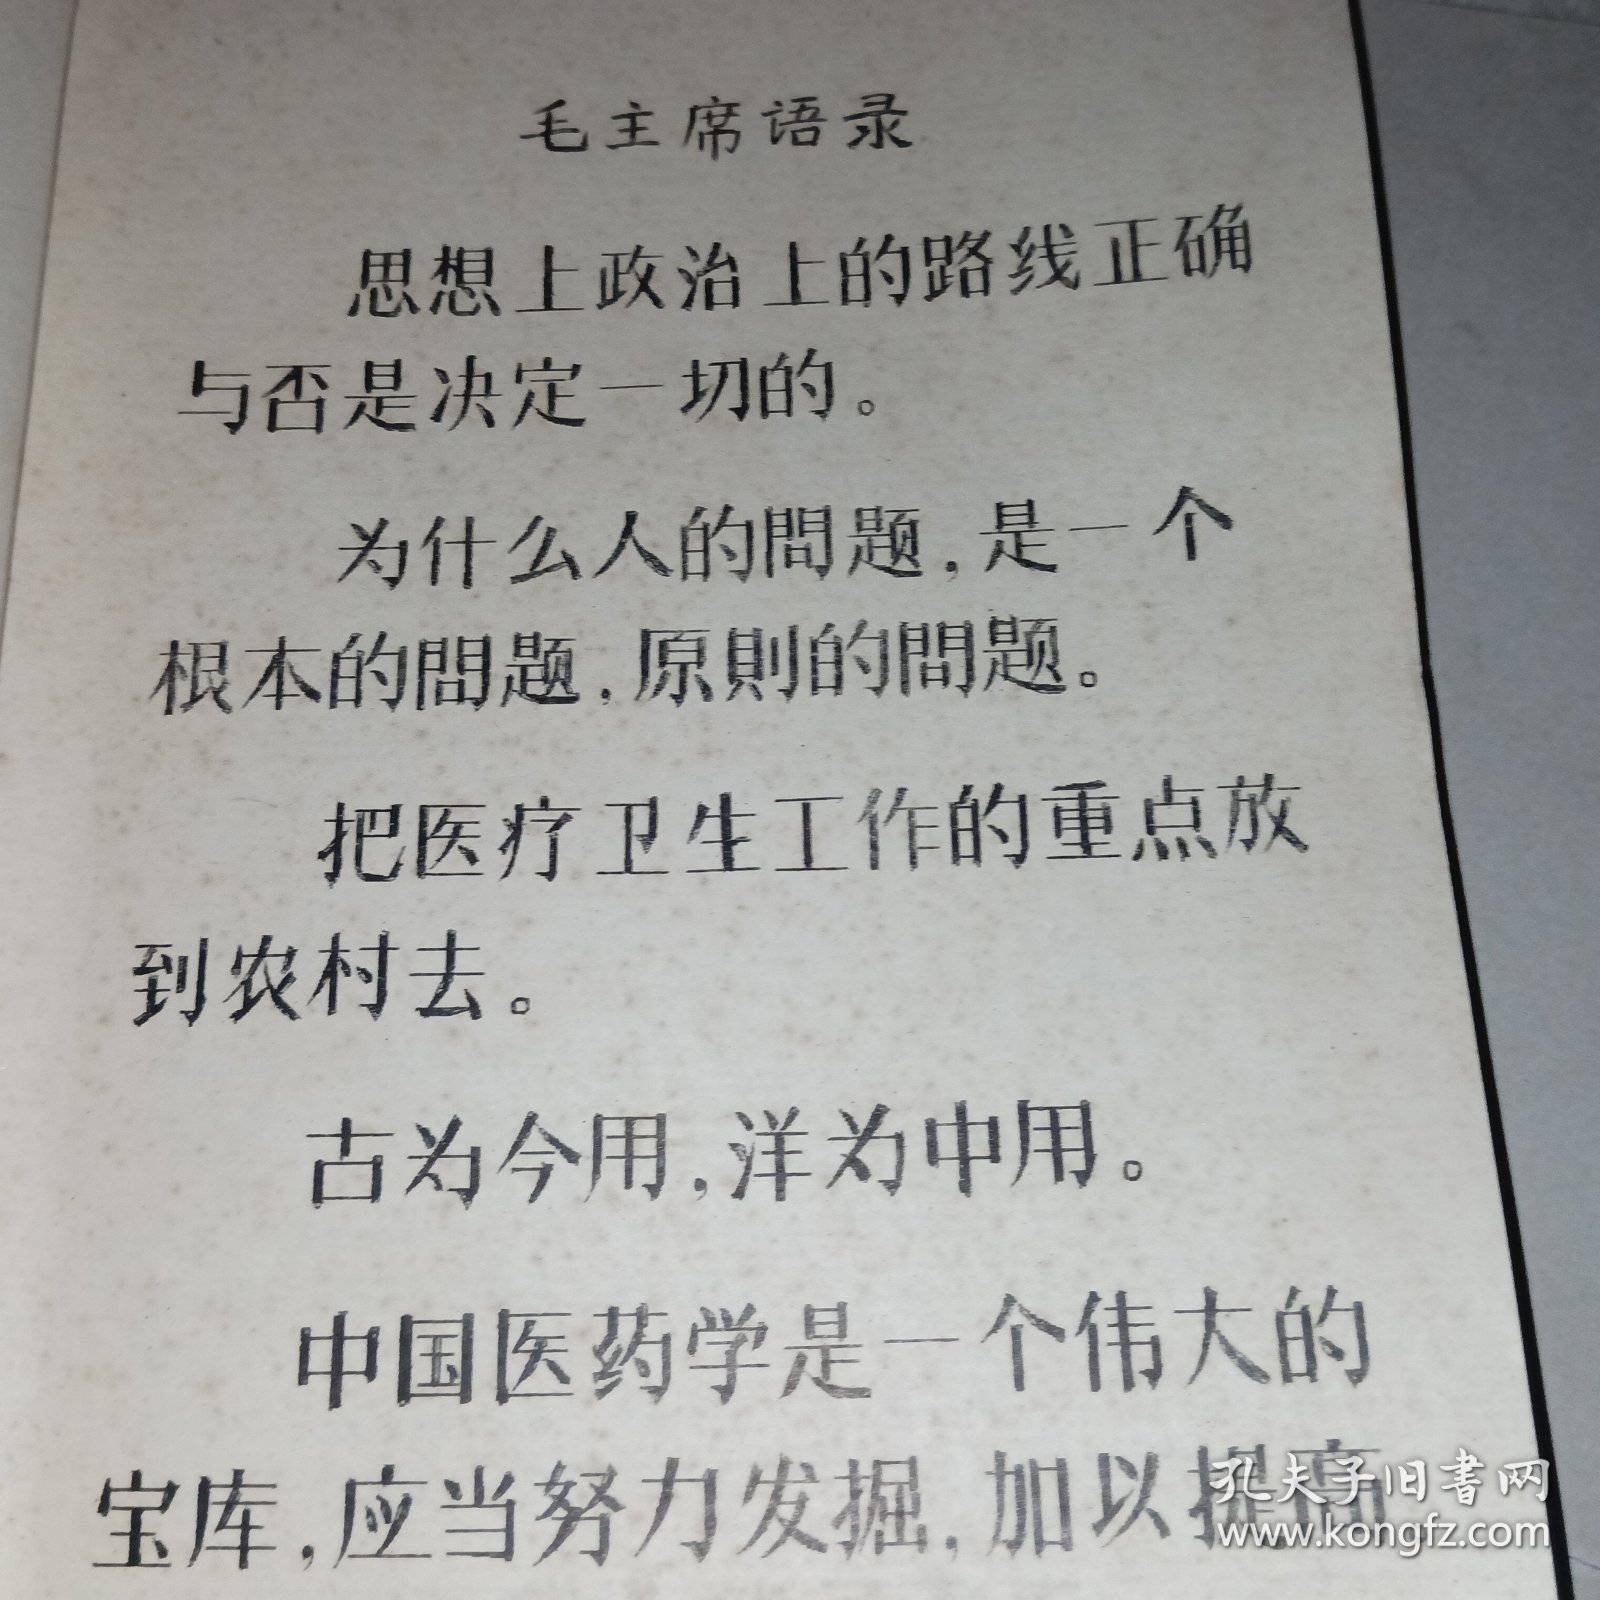 毛主席语录
思想上政治上的路线正确
与否是决定一切的。
为什么人的問题，是一个
根本的問题，原則的問题。
把医疗卫生工作的重点放
到农村去。
古为今用，洋为中用。
中国医药学是一个伟大的
宝库，应当努力发掘，加以提高
孔夫子旧書网
www.kongfz.com